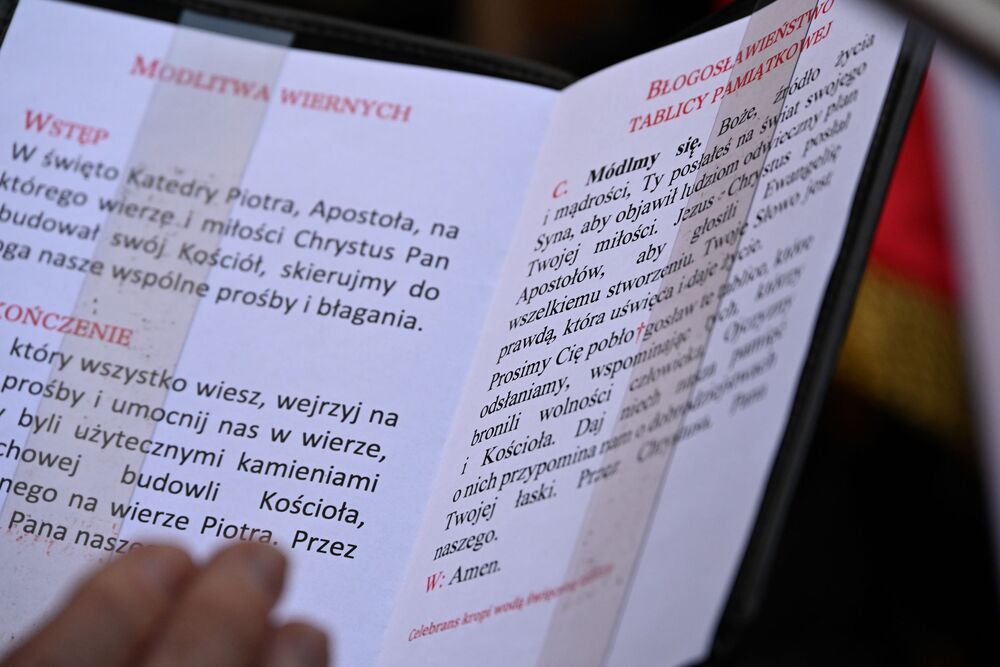 MODLITWA WIERNYCH
WSTĘP
W święto Katedry Piotra, Apostoła, na
którego wierze i miłości Chrystus Pan
budował swój Kościół, skierujmy do
oga nasze wspólne prośby i błagania.
KOŃCZENIE
który wszystko wiesz, wejrzyj na
prośby i umocnij nas w wierze,
y byli użytecznymi kamieniami
chowej budowli Kościoła,
nego na wierze Piotra. Przez
Pana nasze
BŁOGOSŁAWIEŃSTWO
TABLICY PAMIĄTKOWEJ
C. Módlmy się. Boże, źródło życia
i mądrości, Ty posłałeś na świat swojego
Syna, aby objawił ludziom odwieczny plan
Twojej miłości. Jezus Chrystus posłał
Apostołów, aby głosili Ewangelię
wszelkiemu stworzeniu. Twoje Słowo jest
prawdą, która uświęca i daje życie.
Prosimy Cię pobło†gosław te tablice, które
odsłaniamy, wspominając tych, którzy
bronili wolności człowieka, Ojczyzny
i Kościoła. Daj niech nasza pamięć
o nich przypomina nam o dobrodziejstwach
Twojej łaski. Przez Chrystusa, Pana
naszego.
W: Amen.
Celebrans kropi wodą święconą tablice